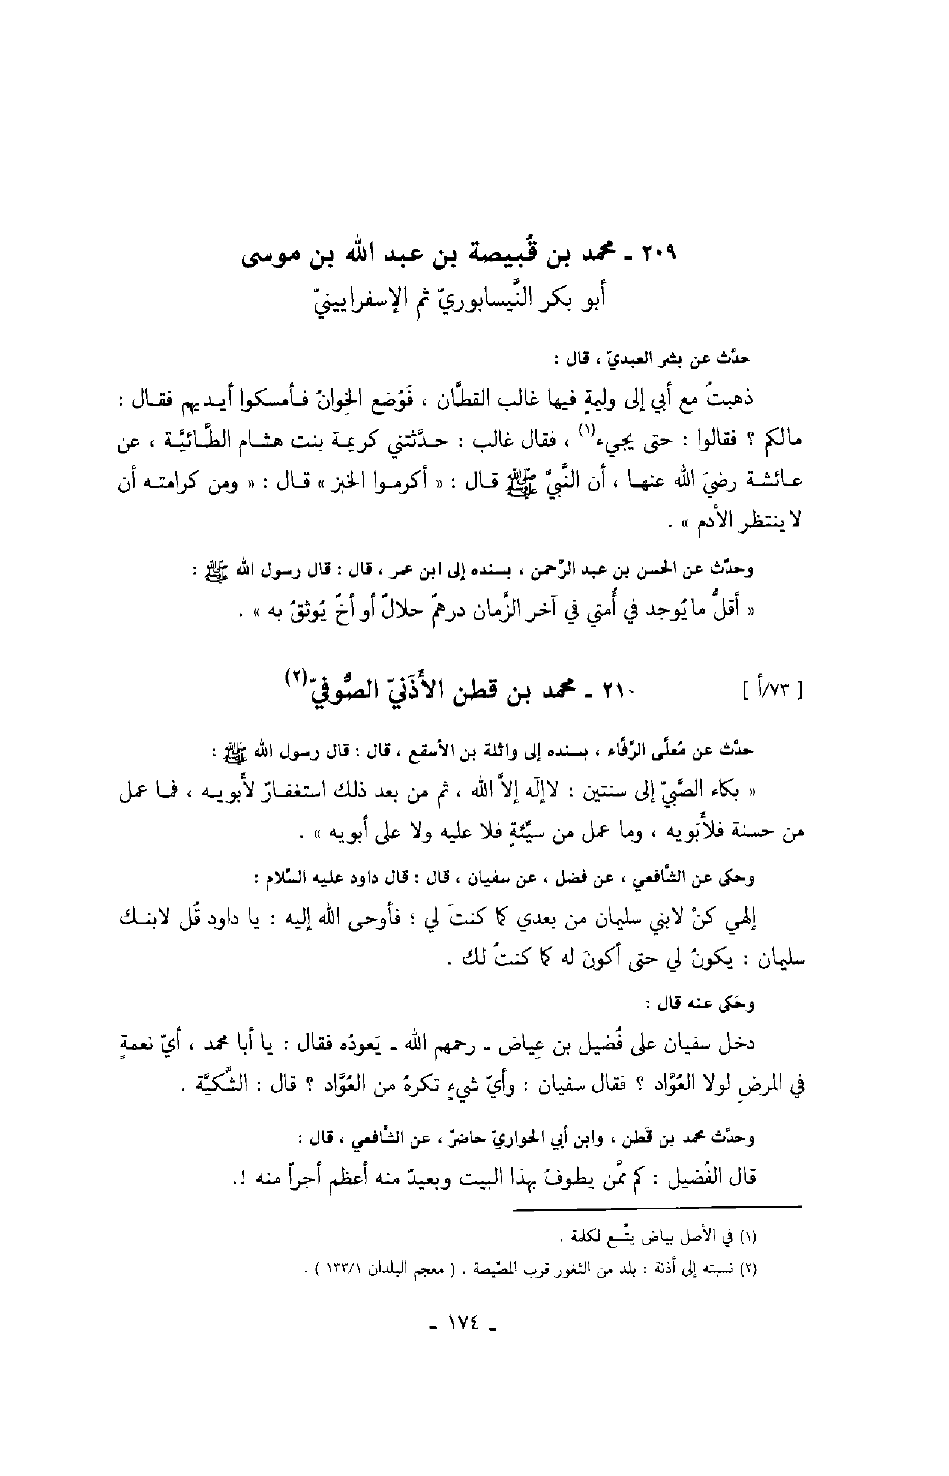 ٢٠٩ ـ محمد بن قُبيصة بن عبد الله بن موسى
أبو بكر النَّيسابوريّ ثم الإسفرايينيّ
حدَّث عن بشر العبديّ ، قال :
ذهبتُ مع أبي إلى وليمةٍ فيها غالب القطَّان ، فَوُضع الخوانُ فأمسكوا أيديهم فقال :
مالكم ؟ فقالوا : حتى يجيء(١) ، فقال غالب : حدَّثتني كريمة بنت هشام الطَّائيَّة ، عن
عائشة رضيَ الله عنها ، أن النَّبيَّ ﷺ قال : « أكرموا الخبز » قال : « ومن كرامته أن
لا ينتظر الأدم » .
وحدَّث عن الحسن بن عبد الرَّحمن ، بسنده إلى ابن عمر ، قال : قال رسول الله ﷺ :
« أقلُّ ما يُوجد في أُمتي في آخر الزَّمان درهمٌ حلالٌ أو أخٌ يُوثقُ به » .
[ ٧٣/أ ] ٢١٠ ـ محمد بن قطن الأَذَنيّ الصُّوفيّ(٢)
حدَّث عن مُعلَّى الرَّفَّاء ، بسنده إلى واثلة بن الأسقع ، قال : قال رسول الله ﷺ :
« بكاء الصَّبيّ إلى سنتين : لاإله إلاَّ الله ، ثم من بعد ذلك استغفارٌ لأبويه ، فما عمل
من حسنة فلأبَويه ، وما عمل من سيِّئةٍ فلا عليه ولا على أبويه » .
وحكى عن الشَّافعي ، عن فضل ، عن سفيان ، قال : قال داود عليه السَّلام :
إلهي كنْ لابني سليمان من بعدي كما كنتَ لي ؛ فأوحى الله إليه : يا داود قُل لابنك
سليمان : يكونُ لي حتى أكونَ له كما كنتُ لك .
وحَكى عنه قال :
دخل سفيان على فُضيل بن عِياض ـ رحمهم الله ـ يَعودُه فقال : يا أبا محمد ، أيّ نعمةٍ
في المرضِ لولا العُوَّاد ؟ فقال سفيان : وأيّ شيءٍ تكرهُ من العُوَّاد ؟ قال : الشَّكيَّة .
وحدَّث محمد بن قَطن ، وابن أبي الحواريّ حاضرٌ ، عن الشَّافعي ، قال :
قال الفُضيل : كم ممَّن يطوفُ بهذا البيت وبعيدٌ منه أعظم أجراً منه !.
(١) في الأصل بياض يتَّسع لكلمة .
(٢) نسبته إلى أذنة : بلد من الثغور قرب المصّيصة . ( معجم البلدان ١٣٣/١ ) .
ـ ١٧٤ ـ